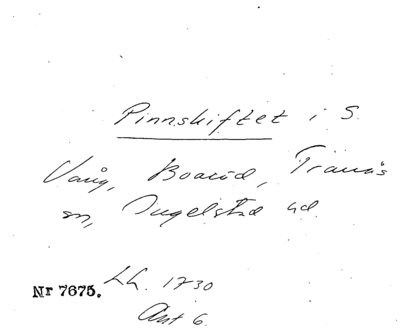 Pinnskiftet i S.
Vång, Boaröd, Tranås
sn, Ingelstad hd.
Nr 7675. LL. 1730
Akt 6.